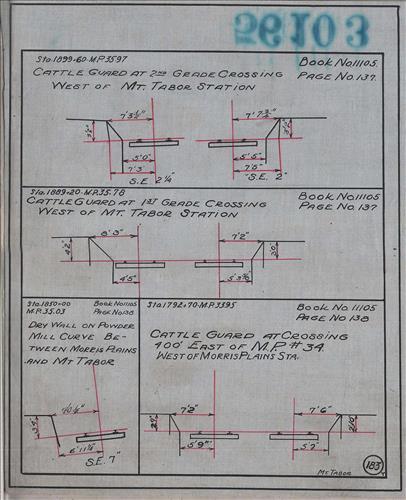 56103
Sta.1899+60-M.P.35.97
Book No.11105.
CATTLE GUARD AT 2ND GRADE CROSSING
PAGE No.137.
WEST OF MT. TABOR STATION
7'3½"
7'7¾"
5'0"
5'5"
7'3"
7'5"
S.E. 2¼"
S.E. 2"
Sta.1889+20-M.P.35.78
Book No.11105
CATTLE GUARD AT 1ST GRADE CROSSING
PAGE No.137
WEST OF MT. TABOR STATION
8'3"
7'2"
4'5"
Sta.1850+00
Book No.11105
M.P.35.03
Page No.138
DRY WALL ON POWDER
MILL CURVE BE-
TWEEN MORRIS PLAINS
AND MT TABOR
6'11¼"
S.E. 7"
Sta.1792+70-M.P.3395
Book No. 11105
PAGE No. 138
CATTLE GUARD AT CROSSING
400' EAST OF M.P.#34.
WEST OF MORRIS PLAINS STA.
7'2"
7'6"
5'9"
5'7"
MT. TABOR
183